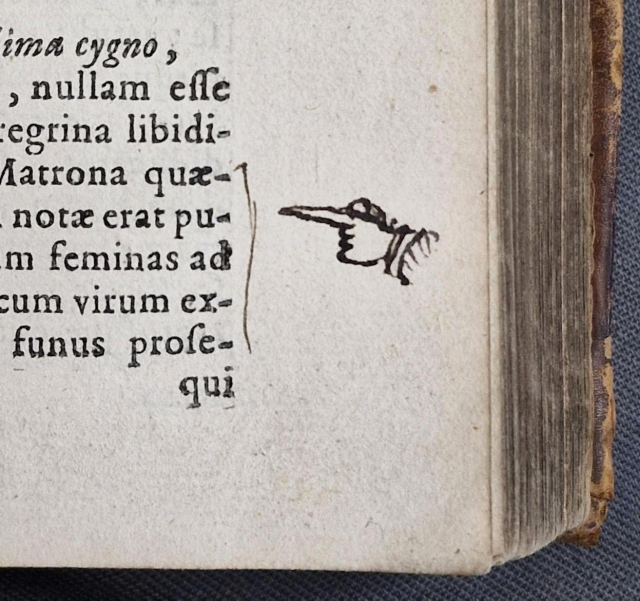 ima cygno,
, nullam eſſe
regrina libidi-
Matrona quæ-
notæ erat pu-
m feminas ad
cum virum ex-
funus proſe-
qui